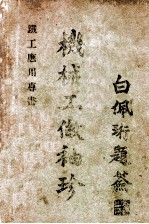 鐵工應用專書
機械工作袖珍
白佩珩題簽